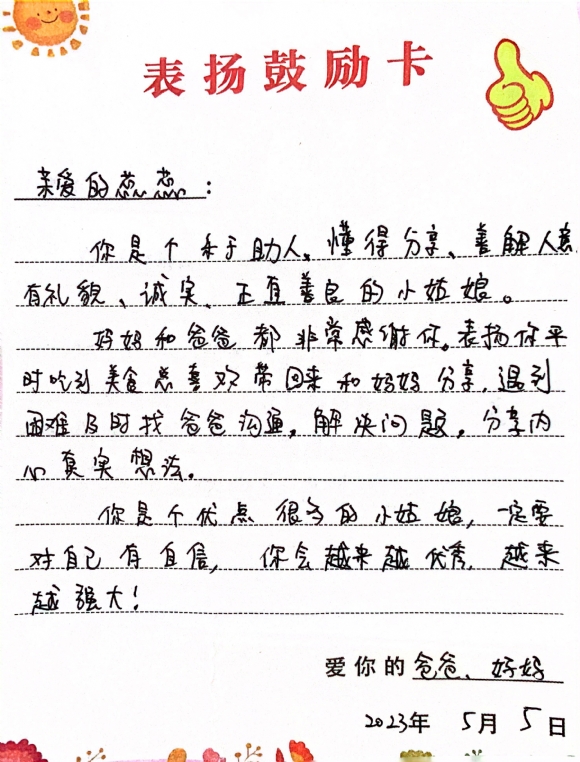 表扬鼓励卡
亲爱的蕊蕊:
你是个乐于助人、懂得分享、善解人意
有礼貌、诚实、正直善良的小姑娘。
妈妈和爸爸都非常感谢你。表扬你平
时吃到美食总喜欢带回来和妈妈分享,遇到
困难及时找爸爸沟通,解决问题,分享内
心真实想法。
你是个优点很多的小姑娘,一定要
对自己有自信,你会越来越优秀,越来
越强大!
爱你的爸爸、妈妈
2023年 5月 5日